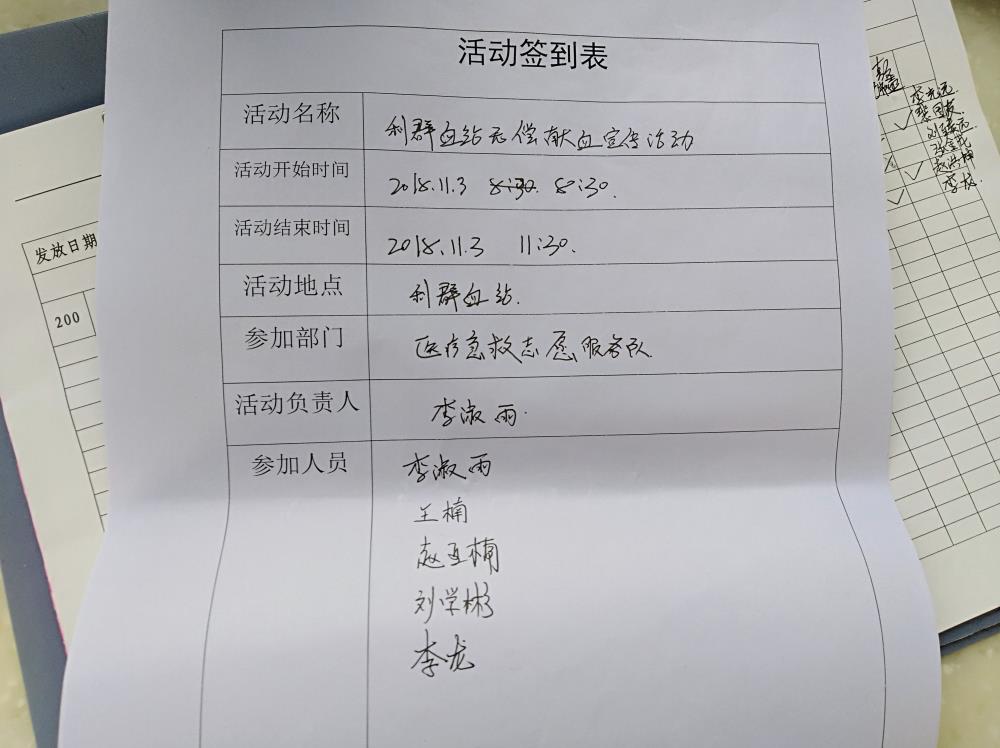 活动签到表
活动名称 利群血站无偿献血宣传活动
活动开始时间 2018.11.3 8:30. 8:30.
活动结束时间 2018.11.3 11:30.
活动地点 利群血站.
参加部门 医疗急救志愿服务队
活动负责人 李淑雨.
参加人员 李淑雨
王楠
赵亚楠
刘学彬
李龙
发放日期
200
李龙.